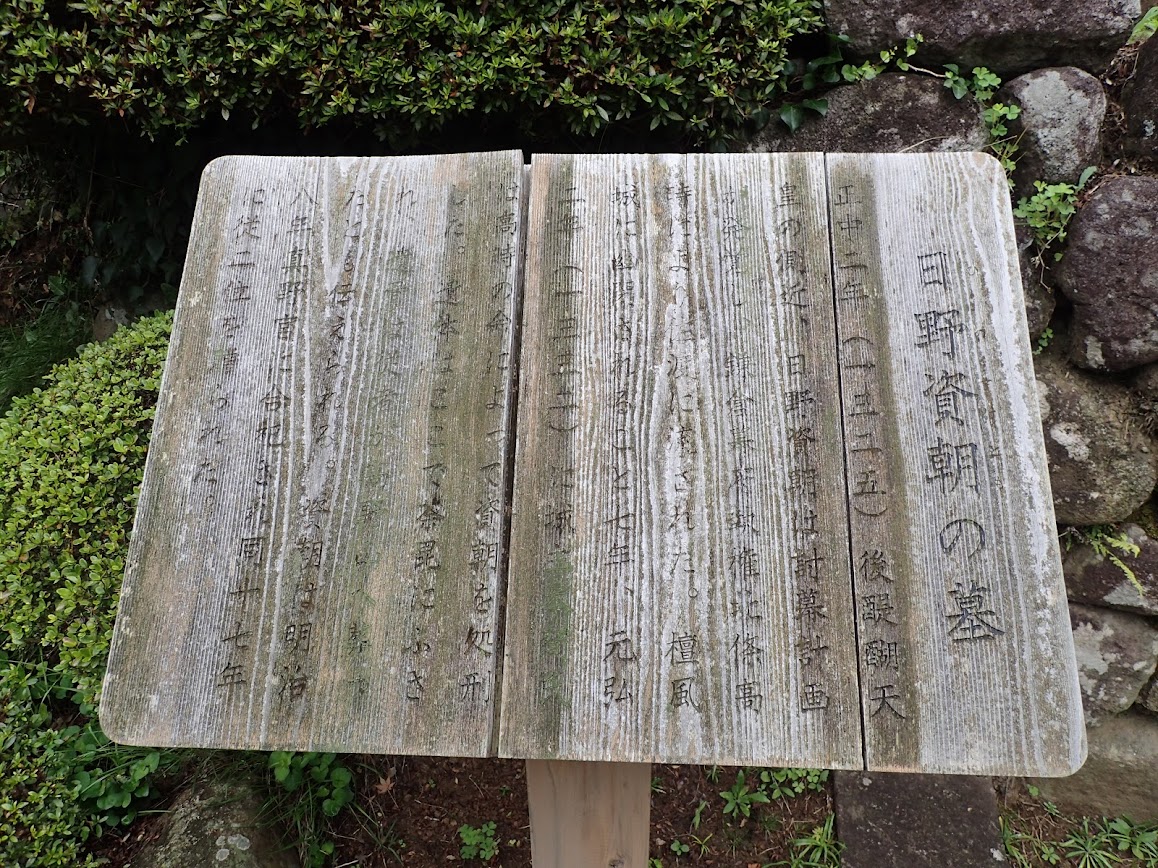 日野資朝の墓
正中二年(一三二五)後醍醐天
皇の側近、日野資朝は討幕計画
が発覚し、鎌倉幕府執権北條高
時によって佐渡に流された。檀風
城に幽閉されること七年、元弘
二年(一三三二)に城
に高時の命によって資朝を処刑
した。遺体はここで荼毘にふさ
れ
たとも伝えられる。資朝は明治
八年真野宮に合祀され同十七年
に従二位を贈られた。